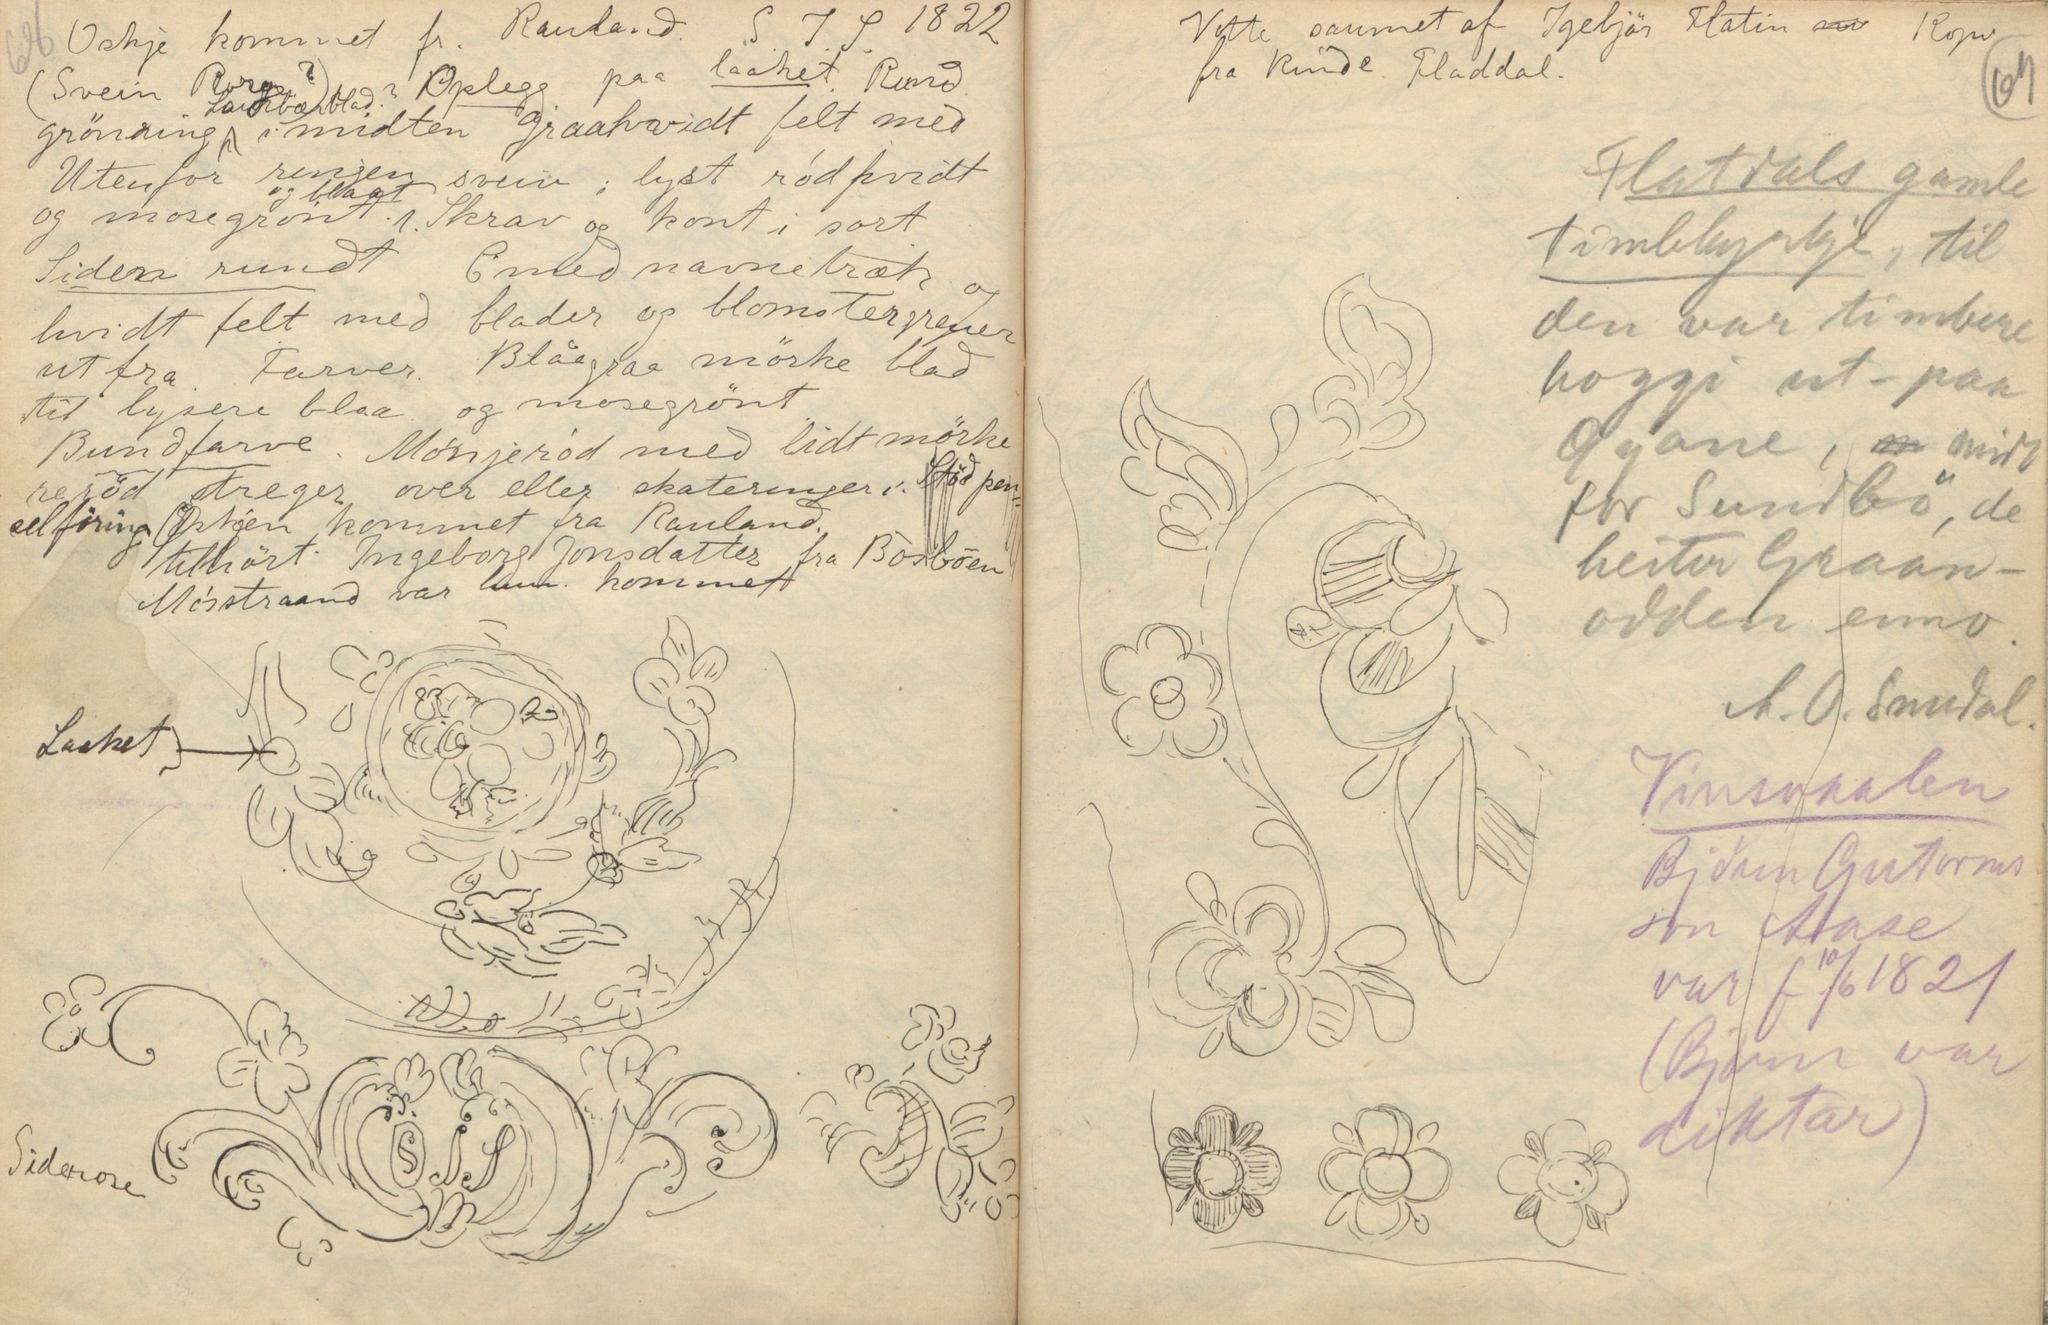 66
Oskje kommet fr. Rauland. S I S 1822
(Svein Rorge?) ? Oplegg paa laaket. Rund
Laurbærblad.?
grönring i midten graahvidt felt med
Utenför ringen svein i lyst röd hvidt
og blaat
og mosegrönt. Skrav og kont i sort
Siden rundt med navnetræk og
hvidt felt med blader og blomstergrener
ut fra. Farver. Blåagraa mörke blad
til lysere blaa og mosegrönt
Bundfarve. Mönjeröd med lidt mörke
reröd streger over eller skateringer i. Stöd pen-
selföring (Öskjen kommet fra Rauland.
tilhört Ingeborg Jonsdatter fra Bosböen
Mösstraand var hun kommet
Laaket
S I S
Siderose
Votte saumet af Igebjör Flatin Kopi
fra Kinde. Fladdal.
67
Flatdals gamle
timbkyrkje, til
den var timbere
hoggi ut-paa
Öyane, midt
for Sundbö, de
heiter Graan-
odden enno.
A. O. Smedal.
Vinsvaalen
Björn Gutorms
son Aase
var f 10/6 1821
(Björn var
diktar)